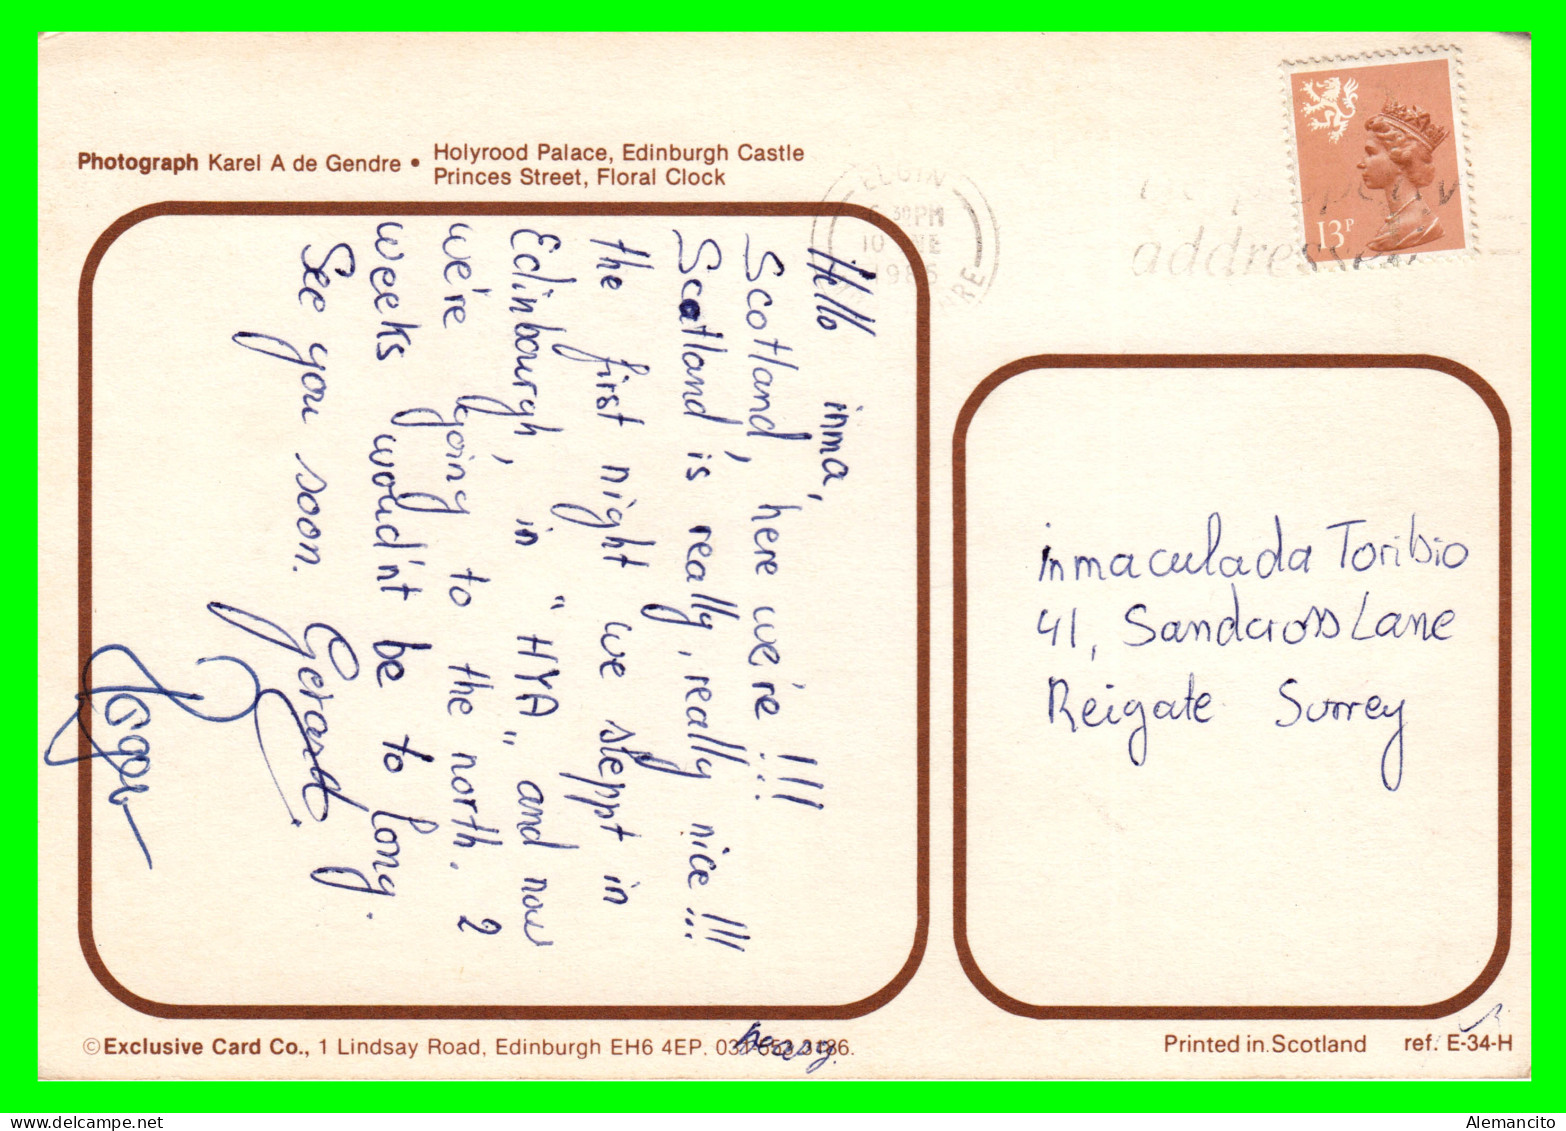 Photograph Karel A de Gendre • Holyrood Palace, Edinburgh Castle
Princes Street, Floral Clock
13P
ELGIN
6 30PM
10
1985
property
addressed
Hello inma,
Scotland, here we're!!!
Scotland is really, really nice!!!
the first night we steppt in
Edinbourgh, in "HYA" and now
we're going to the north. 2
weeks would'nt be to long.
See you soon. Gerard
inmaculada Toribio
41, Sandcross Lane
Reigate Surrey
©Exclusive Card Co., 1 Lindsay Road, Edinburgh EH6 4EP. 031-553 3186.
Printed in Scotland ref. E-34-H
Alemancito